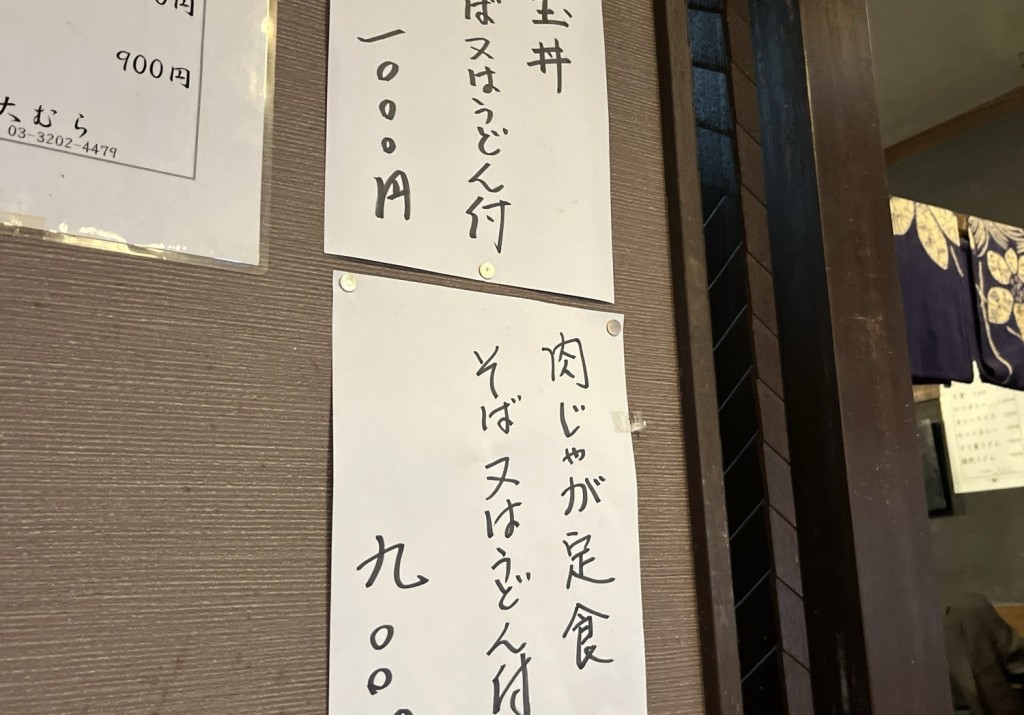 900円
大むら
03-3202-4479
玉丼
ば又はうどん付
一〇〇〇円
肉じゃが定食
そば又はうどん付
九〇〇